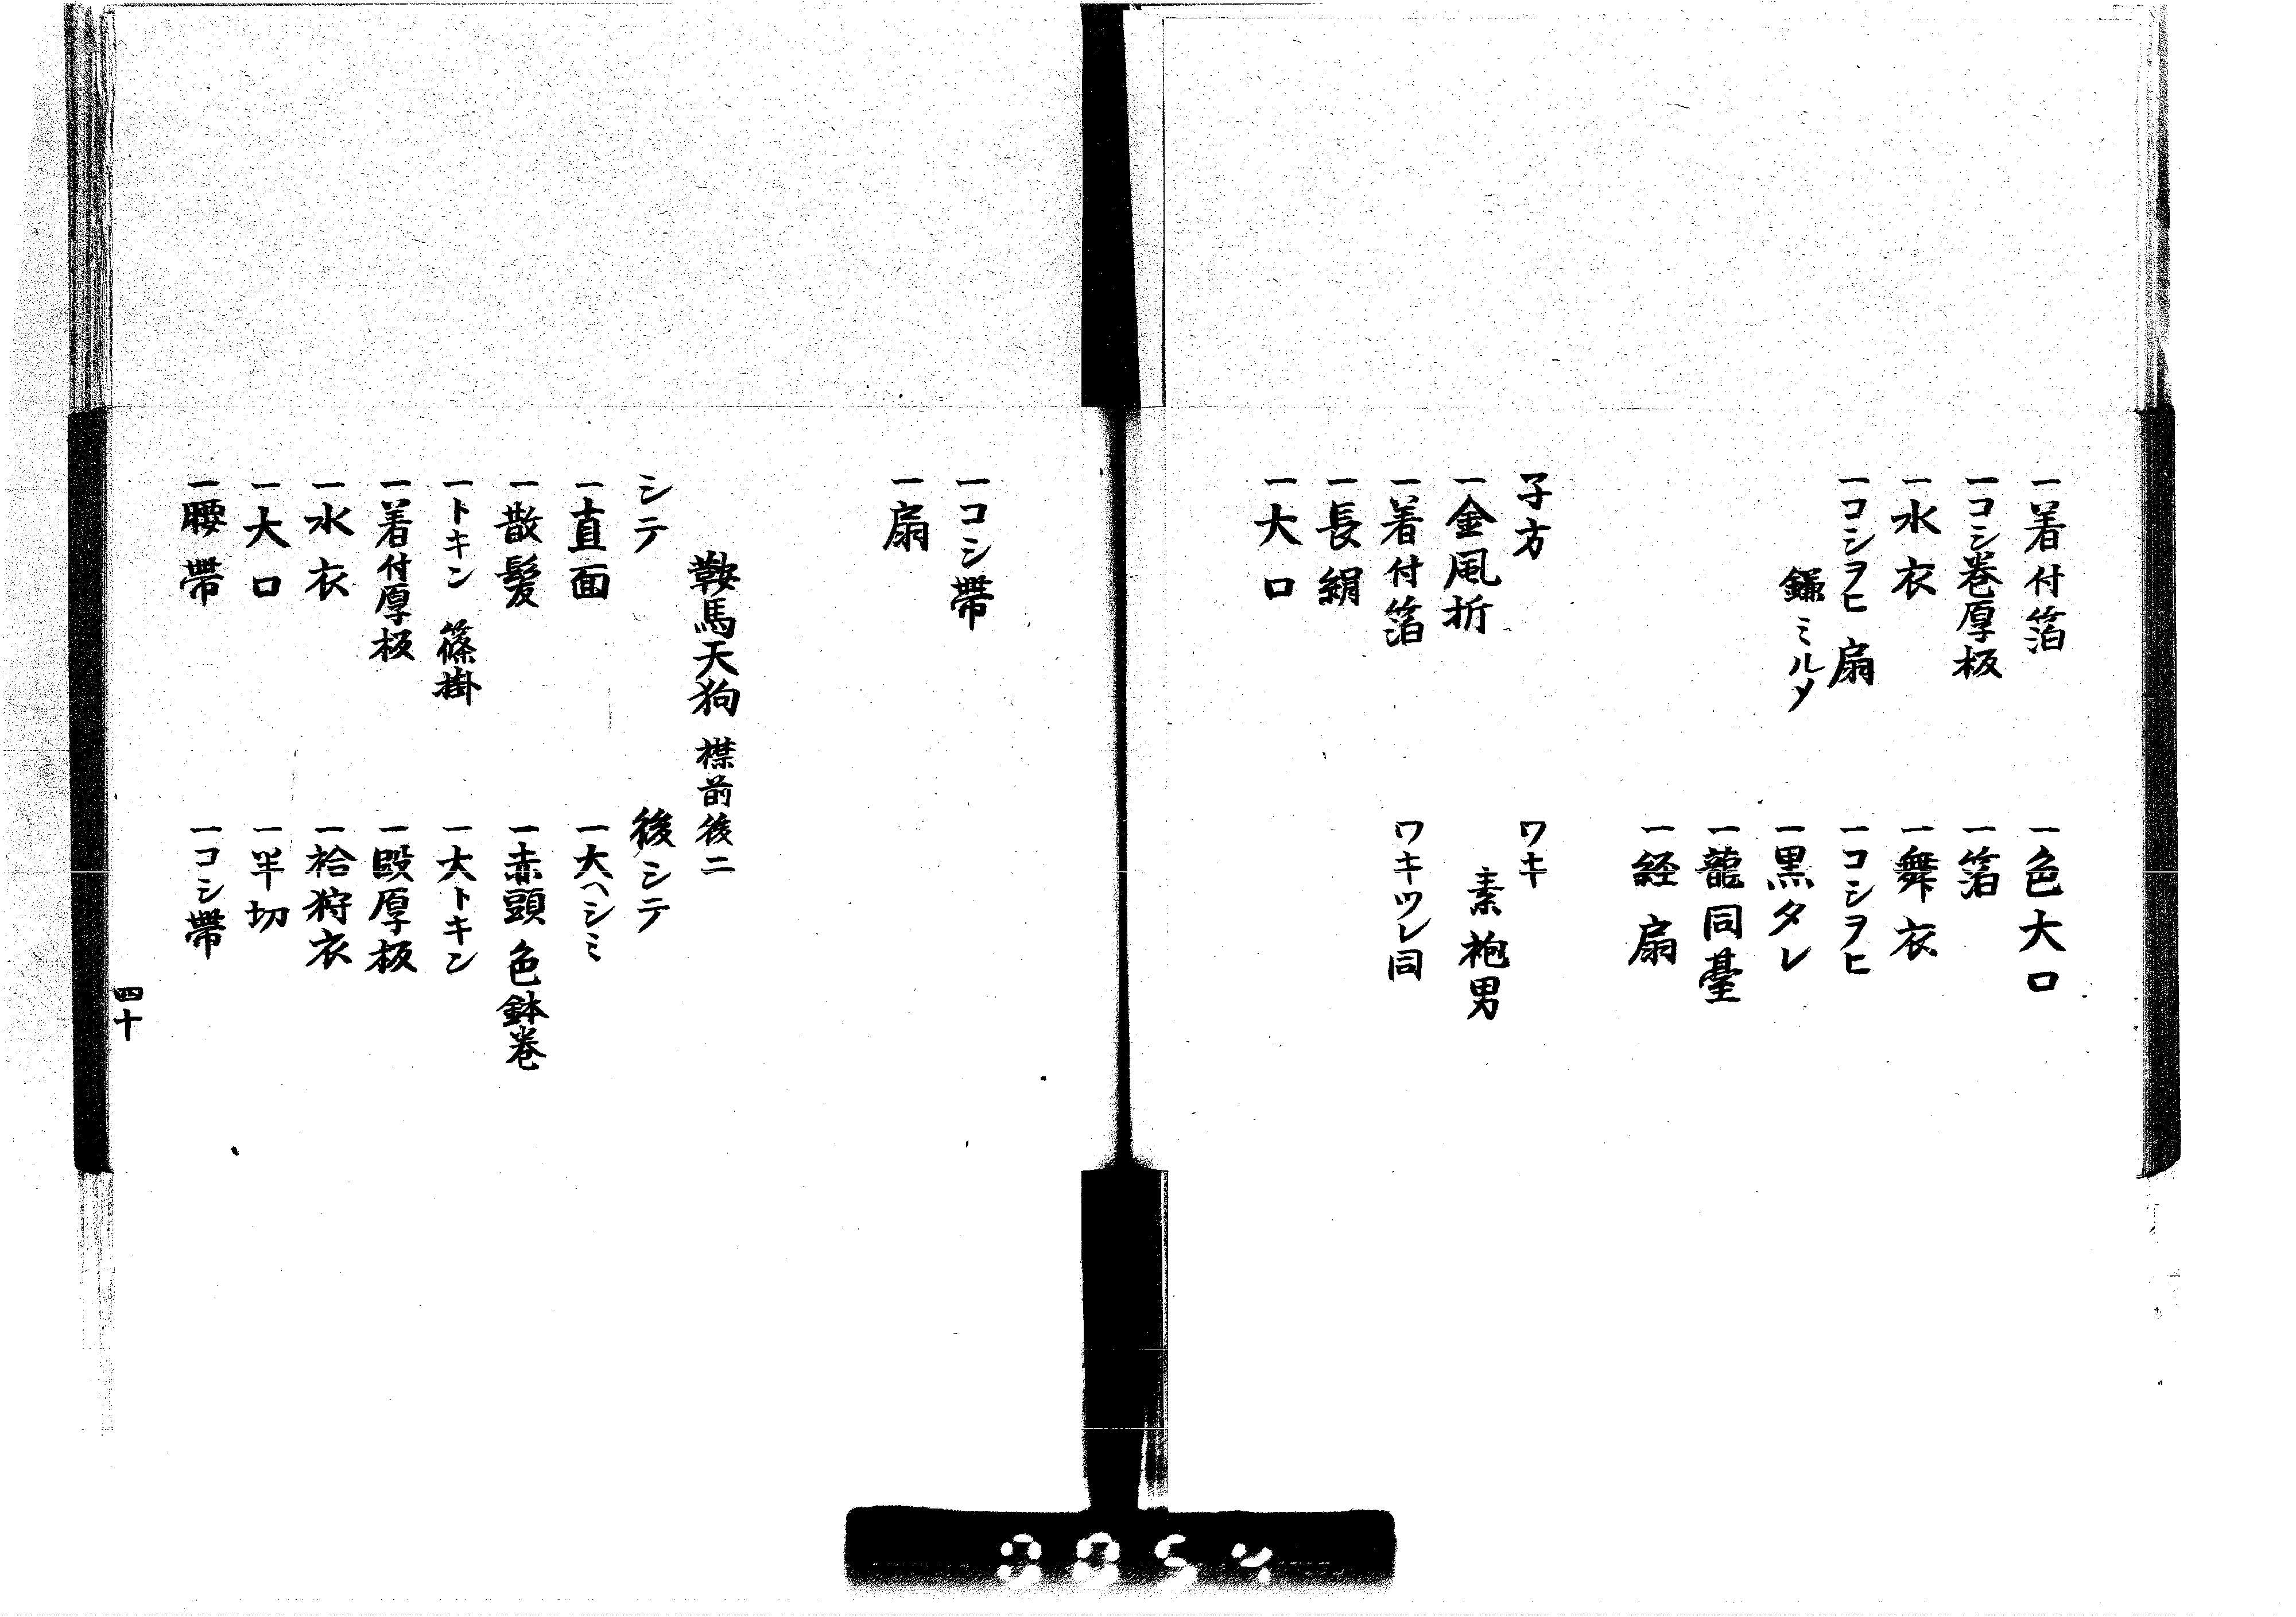 一着付箔
一コシ巻厚板
一水衣
一コシヲヒ 扇
鎌ミルメ
一色大口
一箔
一舞衣
一コシヲヒ
一黒タレ
一龍同臺
一経扇
子方
一金風折
一着付箔
一長絹
一大口
ワキ
素袍男
ワキツレ同
一コシ帯
一扇
鞍馬天狗 襟前後二
シテ
一直面
一散髪
一トキン 篠掛
一着付厚板
一水衣
一大口
一腰帯
後シテ
一大ヘシミ
一赤頭 色鉢巻
一大トキン
一段厚板
一袷狩衣
一半切
一コシ帯
四十